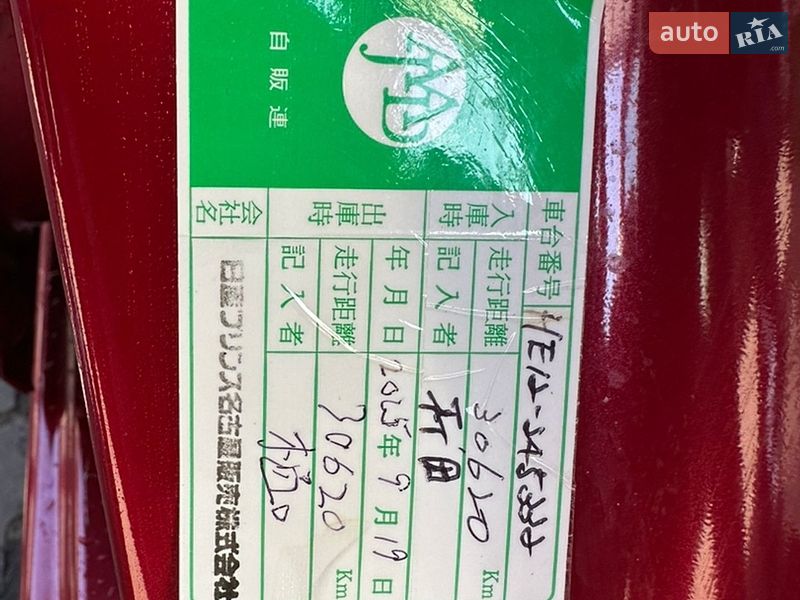 auto RIA .com
自販連
車台番号 HE12-
入庫時
走行距離 30620 Km
記入者
出庫時
年月日 2025年9月19日
走行距離 30620 Km
記入者
会社名 日産プリンス名古屋販売株式会社